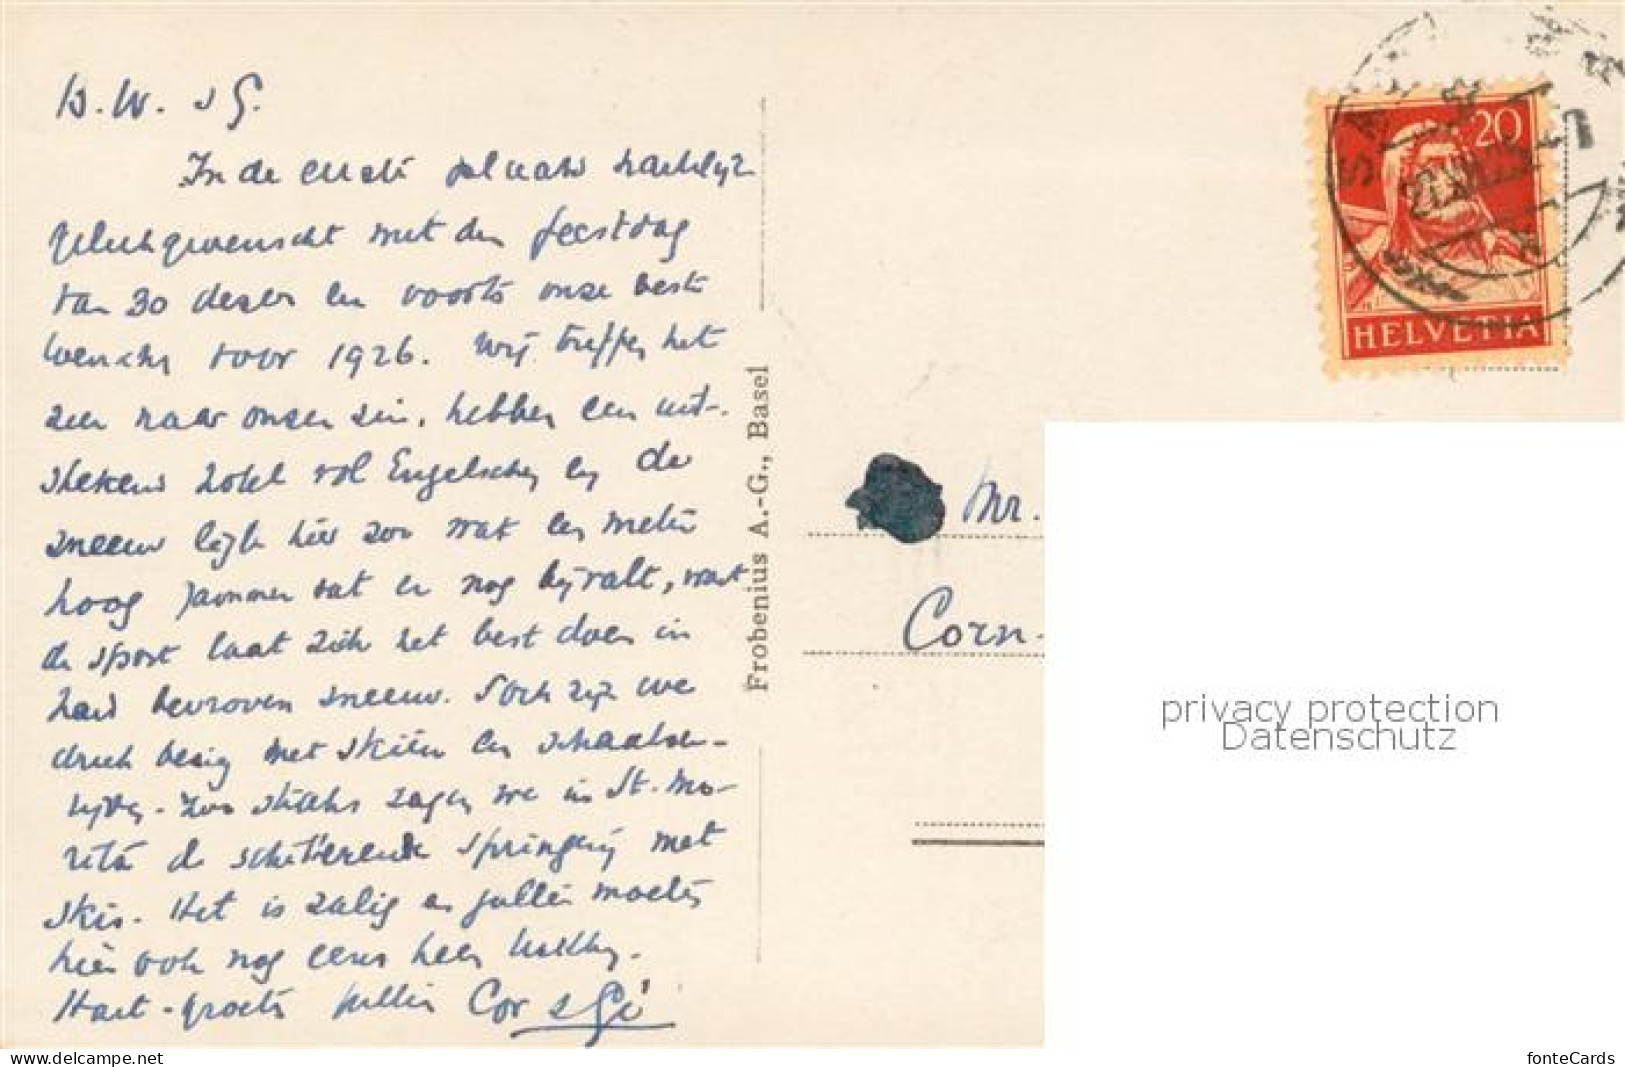 B. W. s G.
In de eerste plaats hartelijk
gelukgewenscht met den feestdag
van 30 dezer en voorts onze beste
wenschen voor 1926. Wij treffen het
zeer naar onzen zin, hebben een uit-
stekend hotel vol Engelschen en de
sneeuw ligt hier zoo wat een meter
hoog jammer dat er nog bijvalt, want
de sport laat zich het best doen in
hard bevroren sneeuw. Toch zijn we
druk bezig met skiën en schaatsen-
rijden. Zoo straks zagen we in St. Mo-
ritz de schitterende springerij met
skis. Het is zalig en jullie moeten
hier ook nog eens heen trekken.
Hart. groeten jullie Cor s Gé
Frobenius A.-G., Basel
20
HELVETIA
Mr.
Corn.
privacy protection
Datenschutz
www.delcampe.net
fonteCards